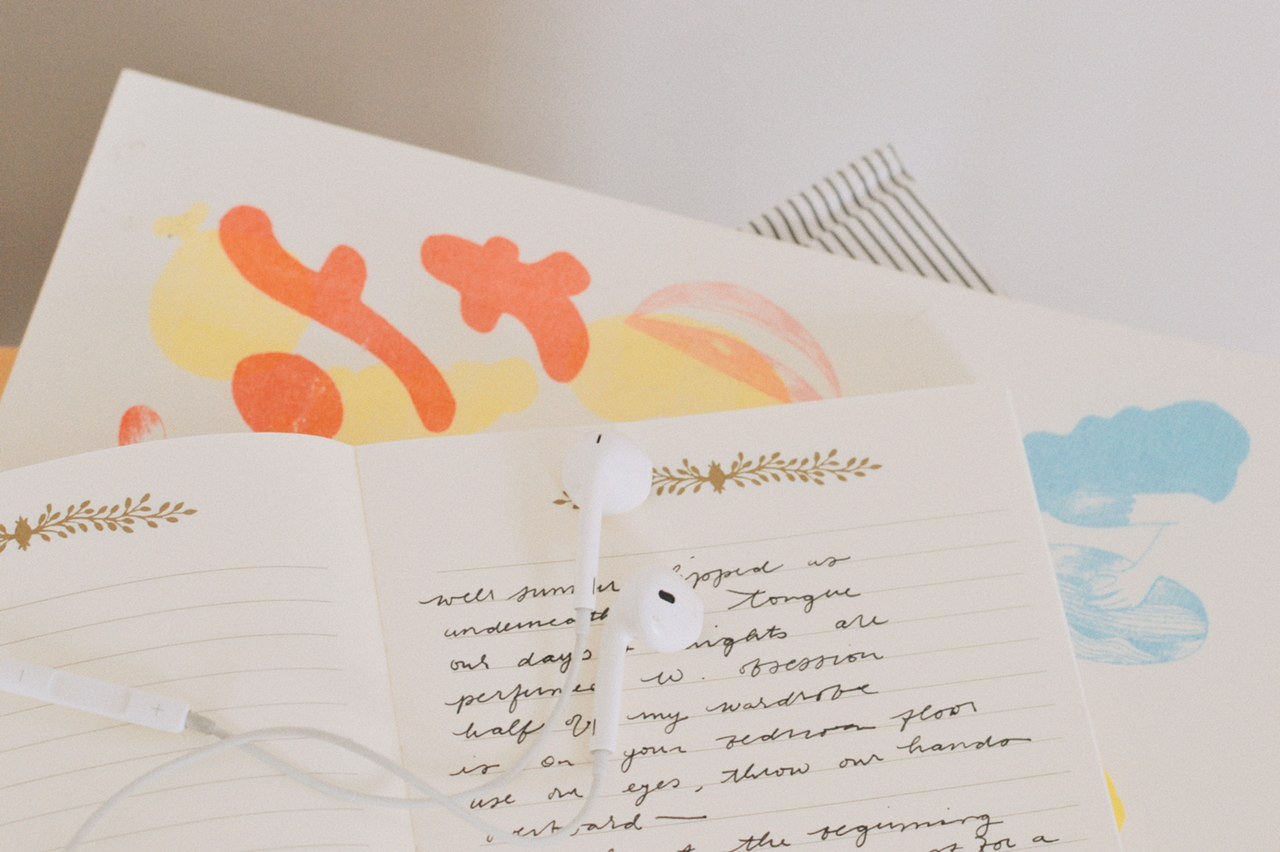 well summer slipped us
underneath tongue
our days nights are
perfumed w. obsession
half of my wardrobe
is on your bedroom floor
use our eyes, throw our hands
overboard —
the beginning
for a